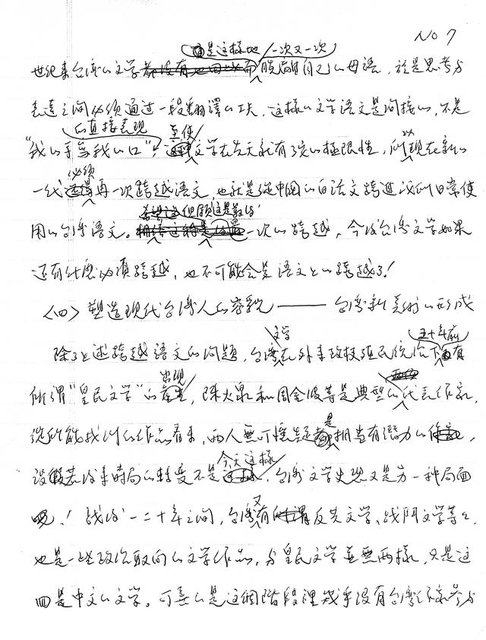 No 7
是這樣地一次又一次
世紀來台灣的文學脫離自己的母語，於是思考與
表達之間必須通過一段翻譯的工夫，這樣的文學語文是間接的，不是
的直接表現 至使
"我的手寫我的口"文學在先天就有了它的極限性，所以現在新的
必須
一代再一次跨越語文，也就是從中國的白話文跨進我們日常使
但願這是最後
用的台灣語文。一次的跨越，今後台灣文學如果
還有什麼必須跨越，也不可能會是語文上的跨越了！
〈四〉塑造現代台灣人的容貌——台灣新美術的形成
文學 五十年前
除了上述跨越語文的問題，台灣在外來政權殖民統治下有
出現
所謂"皇民文學"的，陳火泉和周金波等是典型的代表作家，
是
從所能找到的作品看來，兩人無可懷疑相當有潛力的
今天這樣
設若後來時局的轉變不是，台灣文學史恐又是另一種局面
又
！戰後一二十年之間，台灣有反共文學、戰鬥文學等等，
也是一些政治取向的文學作品，與皇民文學並無兩樣，只是這
回是中文的文學。可喜的是這個階段裡幾乎沒有台灣作家參與